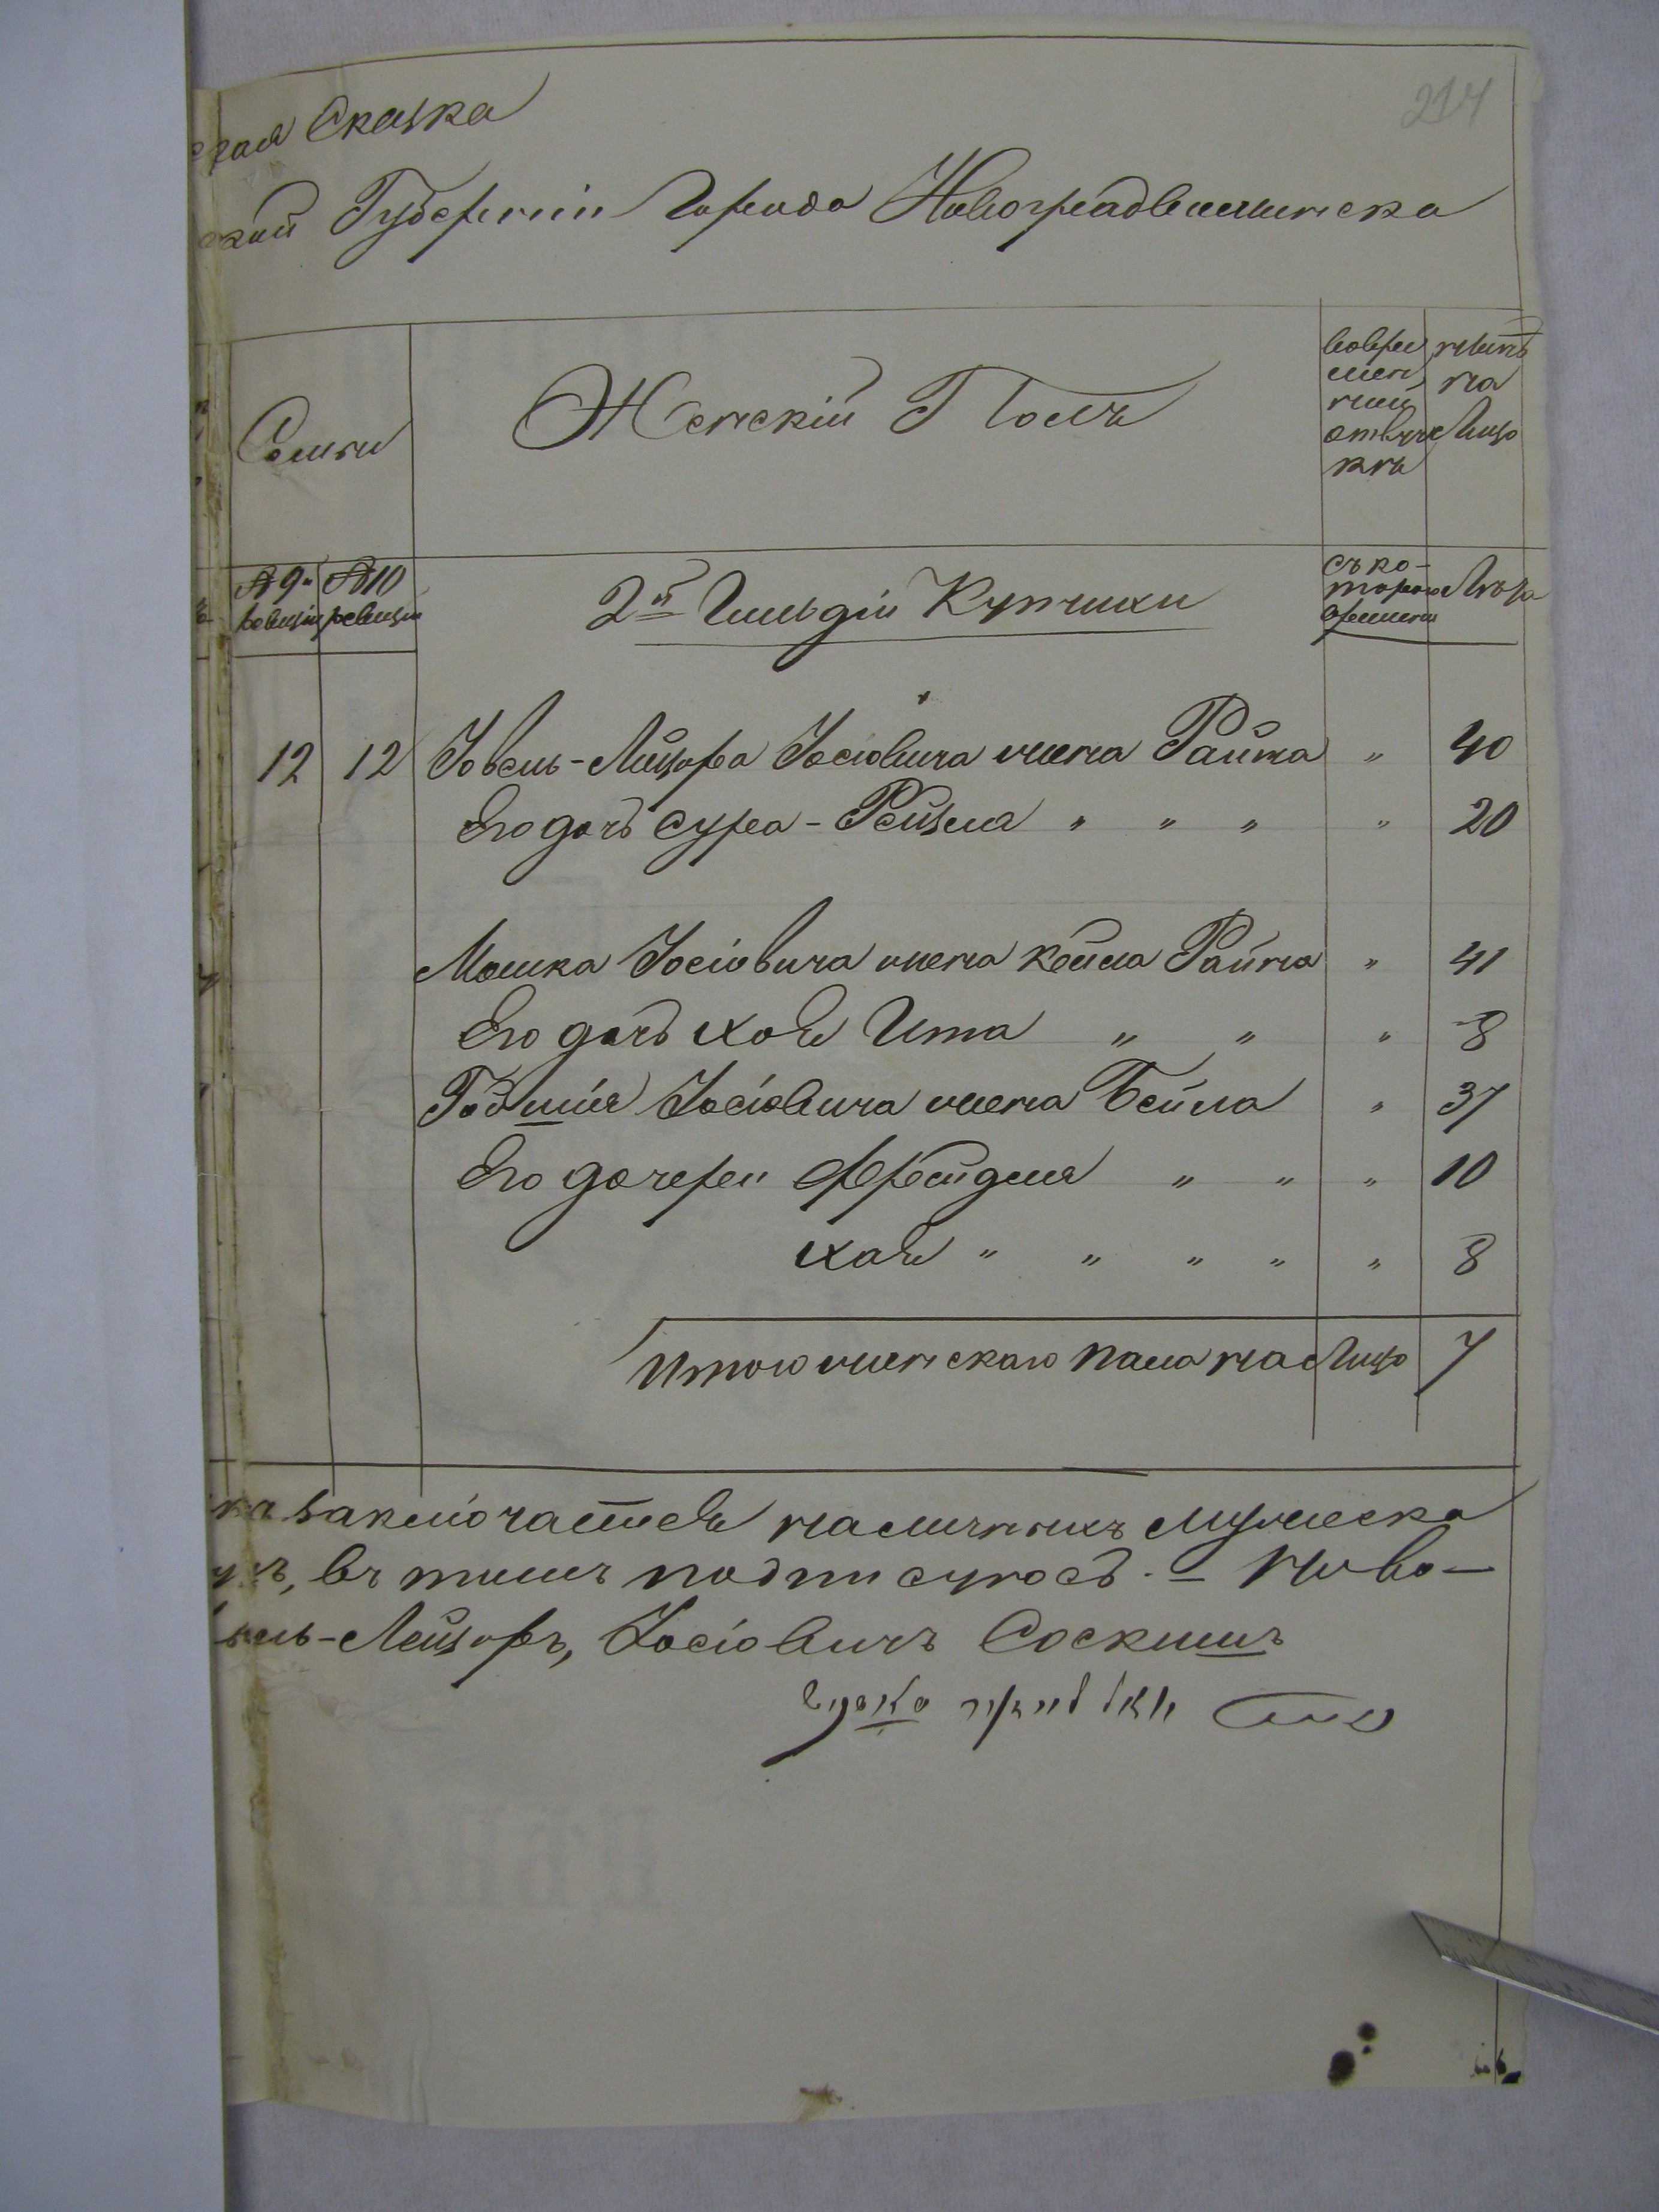 214
ская Сказка
ской Губерніи Города Новоградволынска
Семьи
Женскій Полъ
во вре
мен
ной
отлуч
кѣ
нынѣ
на
лицо
№ 9й
ревизіи
№ 10
ревизіи
2й Гильдіи Купчихи
съ ко-
тораго
времени
Лѣта
12 12 Іовель-Лейзора Іосіовича жена Райта „ 40
Его дочь Сура-Рейзля „ „ „ „ 20
Мошка Іосіовича жена Кейла Райта „ 41
Его дочь Хая Ита „ „ „ 8
Іосіовича жена Бейла „ 37
Его дочери Фрейдля „ „ „ 10
Хая „ „ „ „ „ 8
Итого женскаго пола на лицо 7
ка заключается наличныхъ мужеска
въ томъ подписуюсь. – Ново-
ель-Лейзоръ, Іосіовичъ Соскинъ